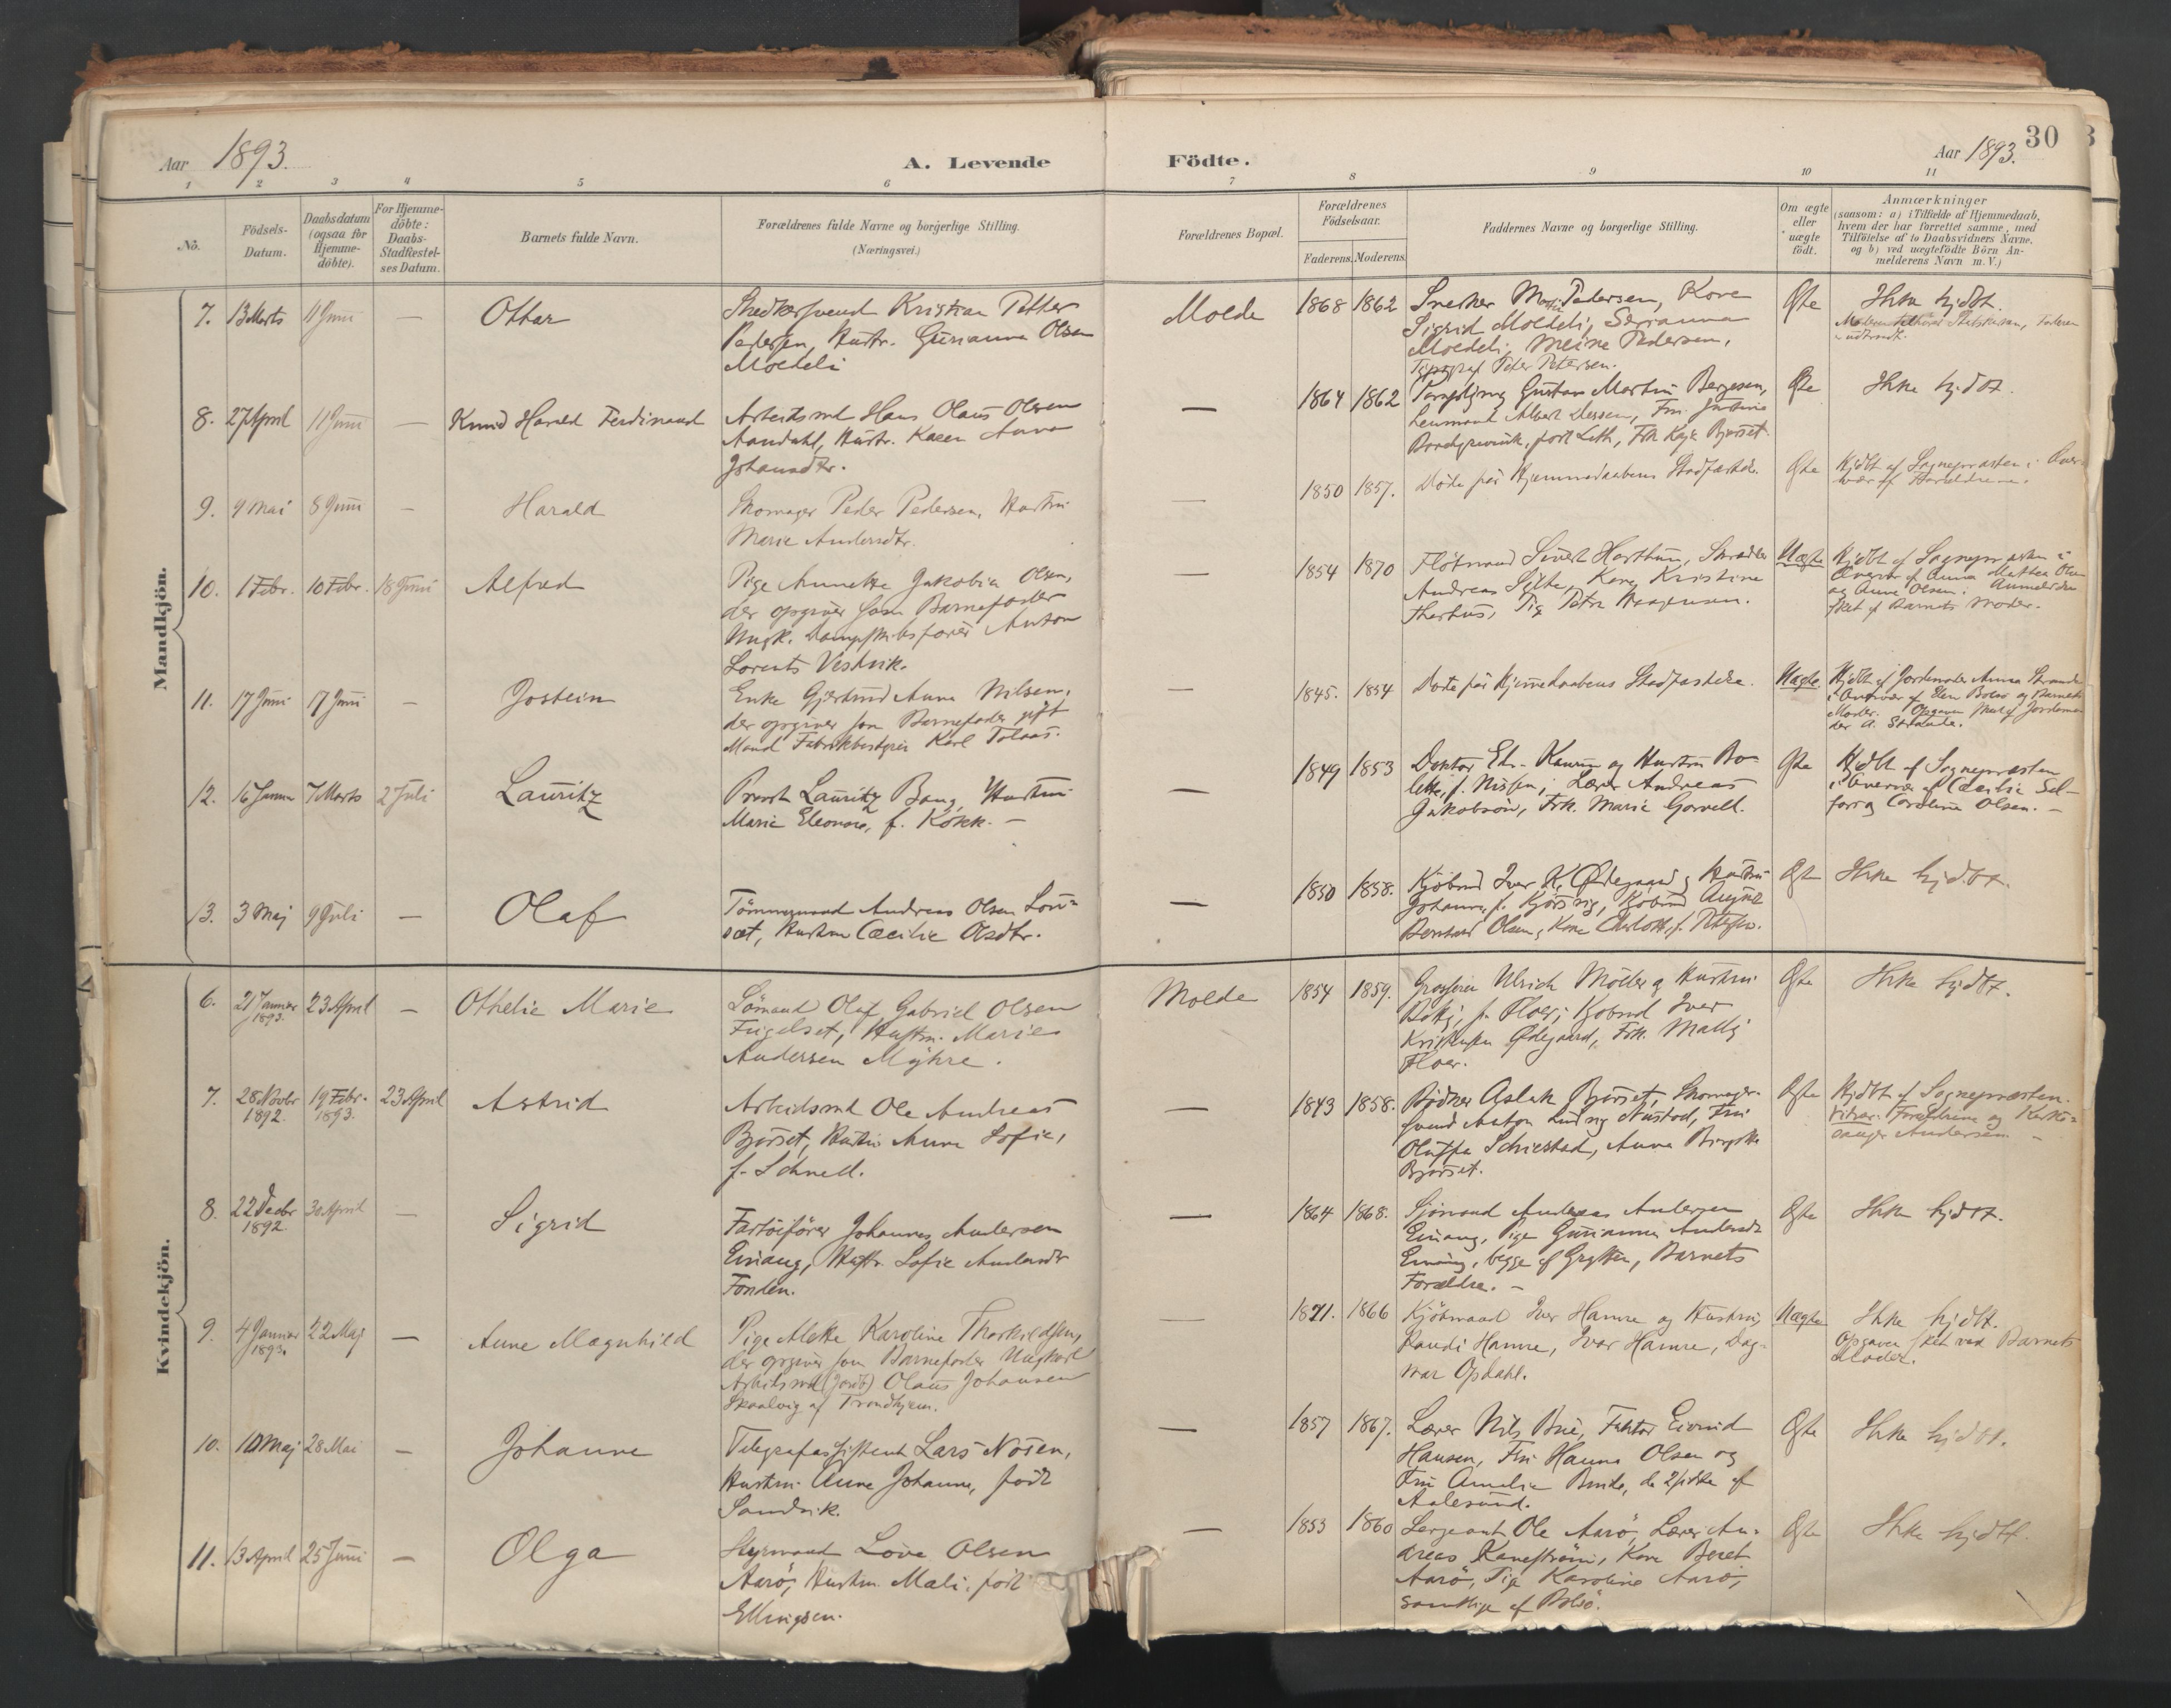 Aar 1893.
A. Levende
Födte.
Aar 1893.
30
1 2 3 4 5 6 7 8 9 10 11
No.
Födsels-
Datum.
Daabsdatum
(ogsaa for
Hjemme-
döbte).
For Hjemme-
döbte:
Daabs-
Stadfæstel-
ses Datum.
Barnets fulde Navn.
Forældrenes fulde Navne og borgerlige Stilling.
(Næringsvei.)
Forældrenes Bopæl.
Forældrenes
Födselsaar.
Faderens. Moderens.
Faddernes Navne og borgerlige Stilling.
Om ægte
eller
uægte
födt.
Anmærkninger
(saasom: a) i Tilfælde af Hjemmedaab,
hvem der har forrettet samme, med
Tilföielse af to Daabsvidners Navne,
og b) ved uægtefödte Börn An-
melderens Navn m. V.)
Mandkjön.
7. 13 Marts 11 Juni — Ottar
Kristian Petter
Pedersen, Hustr. Gurianna Olsen
Moldeli
Molde 1868 1862
Snedker Pedersen, Kone
Sigrid Moldeli, Serianna
Moldeli, Meine Pedersen,
Typograf Peder Petersen.
Ægte
Ikke hjdbt.
8. 27 April 11 Juni — Knud Harald Ferdinand
Arbeidsmd Hans Olaus Olsen
Aandahl, Hustr. Karen Anna
Johansdtr.
— 1864 1862
Gustav Martin Bergesen,
Ægte
Ikke hjdbt.
9. 9 Mai 8 Juni — Harald
Skomager Peder Pedersen, Hustru
Marie Andersdtr.
— 1850 1857.
Döde før Hjemmedaabens Stadfæstelse.
Ægte
Hjdbt af Sognepræsten i Over-
vær af Forældrene.
10. 1 Febr. 10 Febr. 18 Juni Alfred
Pige Annette Jakobia Olsen,
der opgiver som Barnefader
Ungk. Dampskibsfører Anton
Lorents Vestvik.
— 1854 1870
Sivert Harthun,
Andreas Kone Kristine
Uægte
Hjdbt af Sognepræsten i
Overvær af Anna Mathea Olsen
og Anne Olsen. Anmeldelsen
sket af Barnets Moder.
11. 17 Juni 17 Juni — Jostein
Enke Gjertrud Anna Nilsen,
der opgiver som Barnefader gift
Mand Fabrikbestyrer Karl Tolaas.
— 1845. 1854
Döde før Hjemmedaabens Stadfæstelse.
Uægte.
Hjdbt af Jordemoder Anna Strande
i Overvær af Elen Bolsö og Barnets
Moder. Opgaven sket af Jordemo-
der A. Strande.
12. 16 Januar 7 Marts 2 Juli Lauritz
Provst Lauritz Bang, Hustru
Marie Eleonore, f. Kokk. —
— 1849 1853
Doktor Kaurin og Hustru Bo-
lette, f. Nissen, Lærer Andreas
Jakobsön, Frk. Marie Gorvell.
Ægte
Hjdbt af Sognepræsten
i Overvær af Cæcilie Sol-
for og Caroline Olsen. —
13. 3 Maj 9 Juli — Olaf
Tömmermand Andreas Olsen Lon-
set, Hustru Cæcilie Olsdtr.
— 1850 1858.
Kjöbmd Iver K. Ödegaard, Hustru
Johanna, Kjöbmd August
Bernhard Olsen, Kone Charlotte,
Ægte
Ikke hjdbt.
Kvindekjön.
6. 21 Januar 1893. 23 April — Othelie Marie
Olaf Gabriel Olsen
Fugelset, Hustru Marie
Andersen Myhre.
Molde 1854 1859.
Ulrich Möller og Hustru
f. Floer, Kjøbmd Iver
Kristensen Ödegaard, Frk. Mally
Floer.
Ægte
Ikke hjdbt.
7. 28 Novbr 1892. 19 Febr. 1893. 23 April Astrid
Arbeidsmd Ole Andreas
Bjørset, Hustru Anna Sofie,
f. Schnell.
— 1843 1858.
Bødker Aslak Bjørset, Skomager-
svend Anton Ludvig Nustad, Fru
Oluffa Schiestad, Anna Birgitte
Bjørset.
Ægte
Hjdbt af Sognepræsten.
Vitner: Forældrene og Kirke-
sanger Andersen. —
8. 22 Decbr 1892. 30 April — Sigrid
Fartöiförer Johannes Andersen
Einang, Hustr. Sofie Andersdtr
Fonden.
— 1864 1868.
Sjömand Andreas Andersen
Einang, Pige Gurianna Andersdtr
Einang, begge af Grytten, Barnets
Forældre. —
Ægte
Ikke hjdbt.
9. 4 Januar 1893. 22 Maj — Anne Magnhild
Pige Alette Karoline Thorkildsen,
der opgiver som Barnefader Ungkarl
Arbeidsmd Olaus Johansen
Skaalvig af Trondhjem.
— 1871. 1866
Kjöbmand Iver Hamre og Hustru
Randi Hamre, Ivar Hamre, Dag-
mar Opdahl.
Uægte
Ikke hjdbt.
Opgaven sket ved Barnets
Moder.
10. 10 Maj 28 Mai — Johanne
Telegrafassistent Lars Nösen,
Hustru Anne Johanne, född
Sandvik.
— 1857 1867.
Lærer Nils Brue, Faktor Eivind
Hansen, Fru Hanna Olsen og
Fru Amalie de 2 sidste af
Aalesund.
Ægte
Ikke hjdbt.
11. 13 April 25 Juni — Olga
Styrmand Love Olsen
Aarö, Hustru Mali, född
Ellingsen.
— 1853 1860
Sergeant Ole Aarö, Lærer An-
dreas Kaneström, Kone Beret
Aarö, Pige Karoline Aarö,
samtlige af Bolsö.
Ægte
Ikke hjdbt.